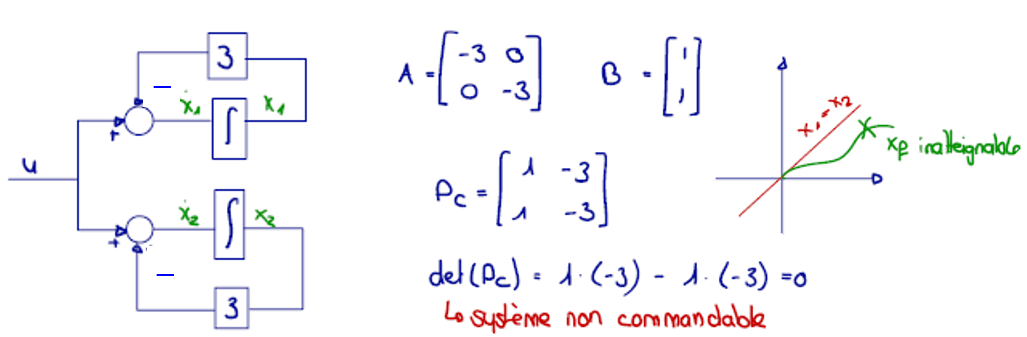 3
−
ẋ₁ x₁
∫
+
u
ẋ₂ x₂
∫
+
−
3
A = [-3 0
0 -3]
B = [1
1]
Pc = [1 -3
1 -3]
det(Pc) = 1·(-3) - 1·(-3) = 0
↳ système non commandable
x₁ = x₂
xf inatteignable